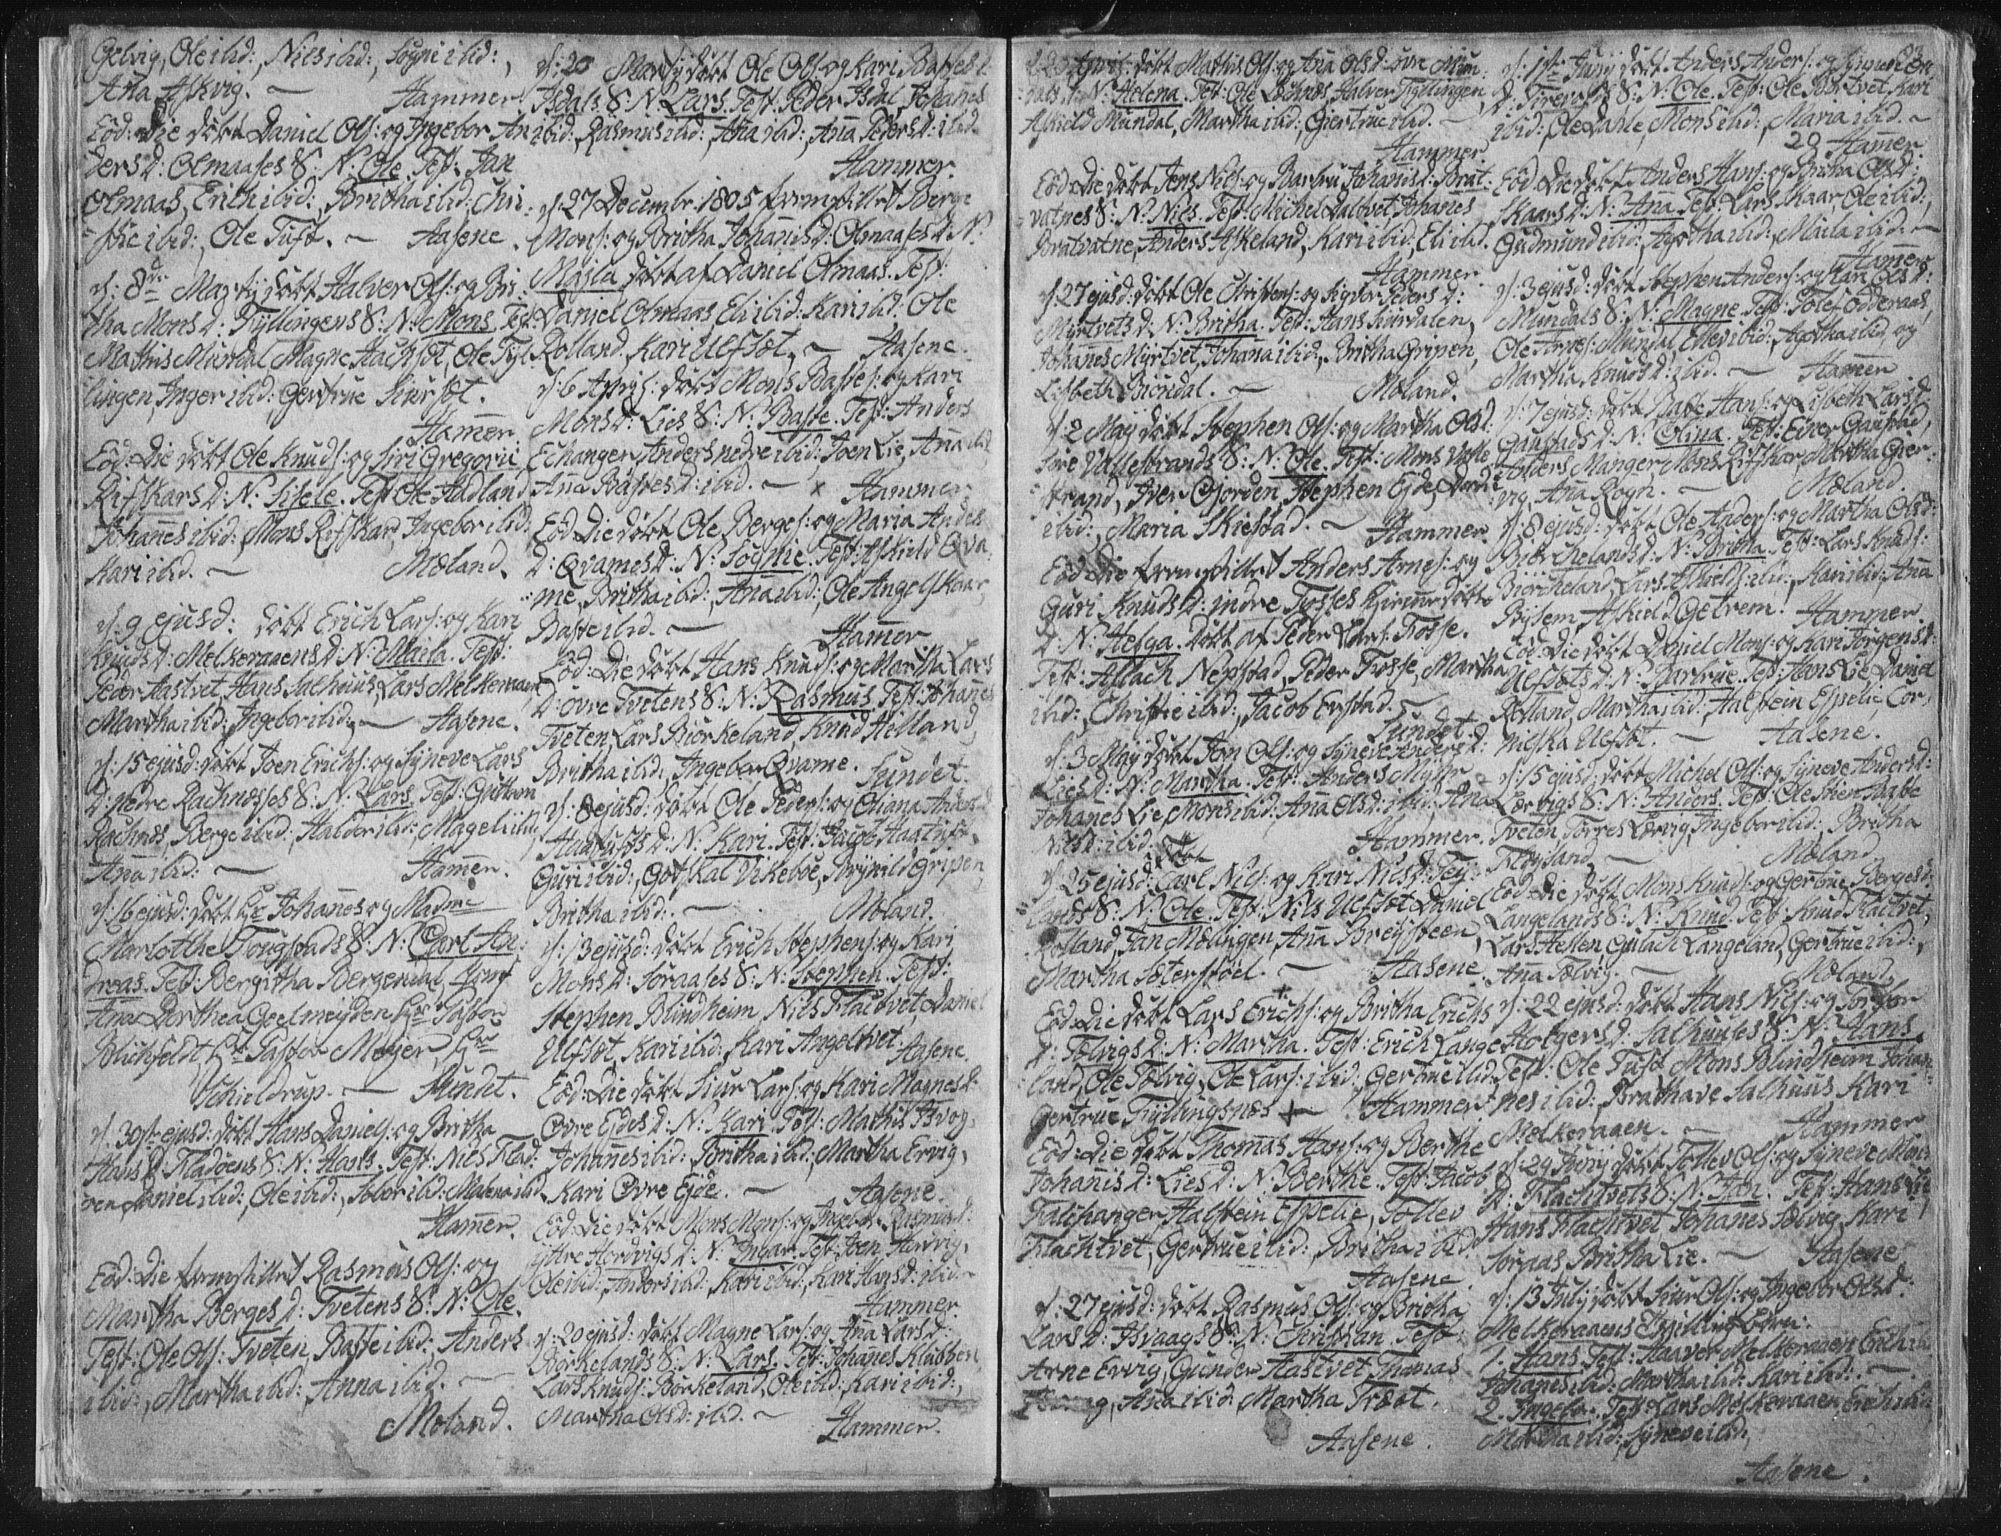 Gelvig, Ole ibid:, Nils ibid:, Sogni ibid:,
Ana Askvig. — Hammer.
Eod: Die döbt Daniel Ols: og Ingebor An
dersd: Olmaases S: N: Ole. Test: Jan
Olmaas, Erich ibid:, Britha ibid: Chri:
stie ibid:, Ole Tuft. — Aasene.
d: 8de Martij döbt Halver Ols: og Bri:
tha Monsd: Fyllingens S: N: Mons. Test:
Mathis Mundal, Magne Hachstöt, Ole Fyl
lingen, Inger ibid:, Gertrue
Hammer.
Eod: Die döbt Ole Knuds: og Siri Gregorii
Rifskars D: N: Sissele. Test: Ole Hadland,
Johannes ibid:, Mons Rifskar, Ingebor ibid:
Kari ibid. — Moland.
d: 9 ejusd: döbt Erich Lars: og Kari
Knudsd: Melkeraaens D: N: Maila. Test:
Peder Hastvet, Hans Salhuus, Lars Melkeraaen
Martha ibid:, Ingebor ibid: — Aasene.
d: 15 ejusd: döbt Joen Erichs: og Synneve Lars
d: nedre Rachnesses S: N: Lars. Test: Guttorm
Rachnes, Berge ibid:, Haldor ibid:, Mageli ibid:
Anna ibid: — Hammer.
d: 16 ejusd: döbt Hr Johannes og Madme
S: N: Carl An:
dreas. Test: Bergitha Bergendal, Jomf
Ana Dorthea Geelmeyden Hr Pastor
Blichfeldt Hr Pastor Meyer, Hr
Schieldrup. — Sundt.
d: 30te ejusd: döbt Hans Daniels: og Britha
Hansd: Fladöens S: N: Hans. Test: Nils Flad:
öen, Daniel ibid:, Ole ibid:, ibid: Malene ibid.
Hammer.
Eod: Die fremstillet Rasmus Ols: og
Martha Bergesd: Tvetens S: N: Ole.
Test: Ole Ols: Tveten, Basse ibid: Anders
ibid:, Martha ibid:, Anna ibid. —
Moland.
d: 20 Martij döbt Ole Ols: og Kari Bassesd:
Isdals S: N: Lars. Test: Peder Isdal, Johanes
ibid:, Rasmus ibid:, Anna ibid:, Anna Pedersd: ibid.
Hammer.
d: 27 Decembr. 1805 fremstillet Berge
Mons: og Britha Johannisd: Olmaases D: N:
Majla döbt af Daniel Olmaas. Test:
Daniel Olmaas Eli ibid: Kari ibid: Ole
Rolland, Kari Ulfstöt. — Aasene.
d: 6 April: döbt Mons Basses: og Kari
Monsd: Lies S: N: Basse. Test: Anders
Echanger, Anders nedre ibid: Joen Lie, Anna ibid
Anna Bassesd: ibid. — Hammer.
Eod: Die döbt Ole Berges: og Maria Anders
d: Qvames D: N: Sognie. Test: Askield Qva
me, Britha ibid:, Anna ibid:, Ole Angelskaar,
Basse ibid. — Hammer
Eod: Die döbt Hans Knuds: og Martha Lars
d: övre Tvetens S: N: Rasmus. Test: Johannes
Tveten, Lars Biörkeland, Knud Helland,
Britha ibid:, Ingebor Qvame. Sundet.
d: 8 ejusd: döbt Ole Peders: og Oliana Andersd
Haatufts D: N: Kari. Test: Jacob Haatuft,
Guri ibid:, Gotskal Vikeböe, Brynild Gripen,
Britha ibid: — Moland.
d: 13 ejusd: döbt Erich Stephens: og Kari
Monsd: Soraases S: N: Stephen. Test:
Stephen Blindheim Nils Flactvet, Daniel
Ulfstöt, Kari ibid:, Kari Angeltvet. Aasene.
Eod: Die döbt Siur Lars: og Kari Magnesd:
Övre Ejdes D: N: Kari. Test: Mathis
Johannes ibid:, Britha ibid:, Martha Ervig,
Kari Övre Ejde. — Aasene.
Eod: Die döbt Mons Mons: og Ingebor Rasmusd:
yttre Hordvigs D: N: Ingar. Test: Joen Hordvig,
Ole ibid:, Anders ibid:, Kari ibid:, Kari Hansd: ibid —
Hammer.
d: 20 ejusd: döbt Magne Lars: og Ana Larsd:
Börkelands S: N: Lars. Test: Johannes Klubben,
Lars Knuds: Börkeland, Ole ibid:, Kari ibid:,
Martha Olsd: ibid. — Hammer.
döbt Mathis Ols: og Ana Olsd: övre Mun:
dals D: N: Helena. Test: Ole Halver Fyllingen,
Askield Mundal, Martha ibid: Giertrue ibid. —
Hammer.
Eod: Die döbt Jens Nils: og Bartru Johannisd: Brat:
vatnes S: N: Nils. Test: Michel Dalbvet, Johanes
Bratvatne, Anders Askeland, Kari ibid:, Eli ibid.
Hammer.
d: 27 ejusd: döbt Ole Christens: og Sigvor Pedersd:
Myrtvets D: N: Britha. Test: Hans
Johanes Myrtvet, Johana ibid:, Britha Gripen,
Lisbeth Biöndal. — Moland.
d: 2 Maij döbt Stephen Ols: og Martha Olsd:
Söre Vallestrands S: N: Ole. Test: Mons Valle
strand, Iver Gjorden, Stephen Ejde,
ibid:, Maria Skiestad. — Hammer.
Eod: Die fremstillet Anders Arnes: og
Guri Knudsd: indre Tosses hjemme döbte
D: N: Helga. döbt af Peder Lars: Tosse.
Test: Aslach Nepstad, Peder Tosse, Martha
ibid:, Christie ibid:, Jacob Erstad. —
Sundet.
d: 3 Maij döbt Jon Ols: og Synneve Andersd:
Lies D: N: Martha. Test: Anders Myhr
Johanes Lie, Mons ibid:, Anna Olsd: ibid:, Ana
Nilsd: ibid. Hammer.
d: 25 ejusd: döbt Carl Nils: og Kari Nilsd:
S: N: Ole. Test: Nils Ulfstöt, Daniel
Rolland, Jan Mölingen, Anna Breisteen,
Martha Sæterstöel. — Aasene.
Eod: Die döbt Lars Erichs: og Britha Erichs
d: Tolvigs D: N: Martha. Test: Erich Lange
land, Ole Tolvig, Ole Lars: ibid:, Gertrue ibid:
Gertrue Fyllingsnæs — Hammer
Eod: Die döbt Thomas Hans: og Berthe
Johannisd: Lies D: N: Berthe. Test: Jacob
Falchanger, Halstein Espelie, Tollev
Flachtvet, Gertrue ibid:, Britha ibid.
Aasene.
d: 27 ejusd: döbt Rasmus Ols: og Britha
Larsd: S: N: Christian. Test:
Arne Ervig, Gunder Hastvet, Thomas
Ana ibid: Martha Træet.
Aasene.
23
d: 1ste Junij döbt Anders Anders: og Synneve
S: N: Ole. Test: Ole Kari
ibid:, Ole Dahle, Mons ibid:, Maria ibid. —
29 Hammer.
Eod: Die döbt Anders Hans: og Britha Olsd:
Skaars D: N: Ana. Test: Lars Skaar, Ole ibid:,
Gudmund ibid:, Agatha ibid:, Maila ibid: —
Hammer
d: 3 ejusd: döbt Stephen Anders: og Kari Olsd:
Mundals S: N: Magne. Test: Tolef Odderaas,
Ole Arnes: Mundal, Ellev ibid:, Agatha ibid, og
Martha Knudsd: ibid. — Hammer
d: 7 ejusd: döbt Babe Hans: og Lisbeth Larsd:
Gaustads D: N: Olina. Test: Einer Gaustad,
Anders Manger, Mons Rifskar, Martha Gier:
vig, Anna Rogn. — Moland.
d: 8 ejusd: döbt Ole Anders: og Martha Olsd:
Birchelands D: N: Britha. Test: Lars Knuds:
Biörckeland, Lars Askields: ibid:, Kari ibid:, Anna
Rysem, Askield Getrem. Hammer.
Eod: Die döbt Daniel Mons: og Kari Jörgensd:
Ulfstöts D: N: Bartrue. Test: Hans Lie, Daniel
Rolland, Martha ibid:, Halstein Espelie, Cor,
nilska Ulfstöt. — Aasene.
d: 15 ejusd: döbt Michel Ols: og Synneve Andersd:
Lervigs S: N: Anders. Test: Ole Stenstabe
Tveten, Torres Lærvig, Ingebor ibid:, Britha
Flöysand — Moland.
Eod: Die döbt Mons Knuds: og Gertrue Bergesd:
Langelands S: N: Knud. Test: Knud Flactvet,
Lars Hellen, Gulach Langeland, Gertrue ibid:,
Ana Tælvig. — Moland.
d: 22 ejusd: döbt Hans Nils: og Torbor
Holgersd: Salhuuses S: N: Hans.
Test: Ole Tuft, Mons Blindheim, Johan:
nes ibid:, Brathave Salhuus, Kari
Melkeraaen. — Hammer
d: 29 Junij döbt Tollev Ols: og Synneve Mons
d: Flachtvets S: N: Jan. Test: Hans Lie,
Hans Flachtvet, Johanes Solvig, Kari
Soraas, Britha Lie. — Aasene
d: 13 Julij döbt Siur Ols: og Ingebor Olsd:
Melkeraaens Tvilling Börn.
1. Hans. Test: Haaver Melkeraaen, Erich ibid
Johanis ibid: Martha ibid: Kari ibid: —
2. Ingebor. Test: Lars Melkeraaen, Erich ibid:
Martha ibid: Synneve ibid:
Aasene.